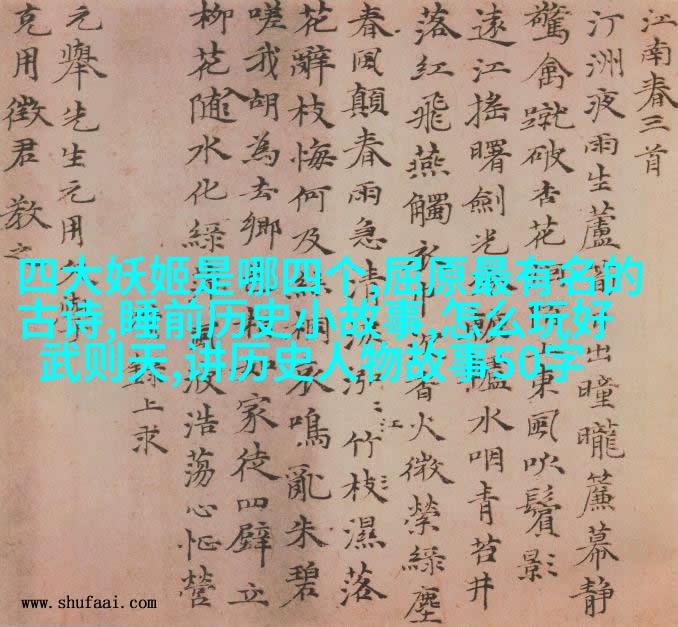 江南春三首
汀洲夜雨生蘆出瞳曨簾幕靜
驚禽蹴破杏花東風吹鬢影
遠江搖曙劍光轤水咽青苔井
落紅飛燕觸衣香火微縈綠塵
春風顛春雨急清泓〻竹枝濕落
江
花辭枝悔何及絲桐哀鳴亂朱碧
嗟我胡為去鄉家徒四壁立
柳花隨水化綠風波浩蕩心怔營
上求
元舉先生元用
克用徵君教之
四大妖姬是哪四个,屈原最有名的
古诗,睡前历史小故事,怎么玩好
武则天,讲历史人物故事50字
www.shufaai.com